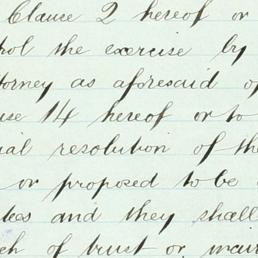 Clause 2 hereof or
rol the exercise by
torney as aforesaid of
use 14 hereof or to
ial resolution of the
or proposed to be
tees and they shall
ch of trust or incur